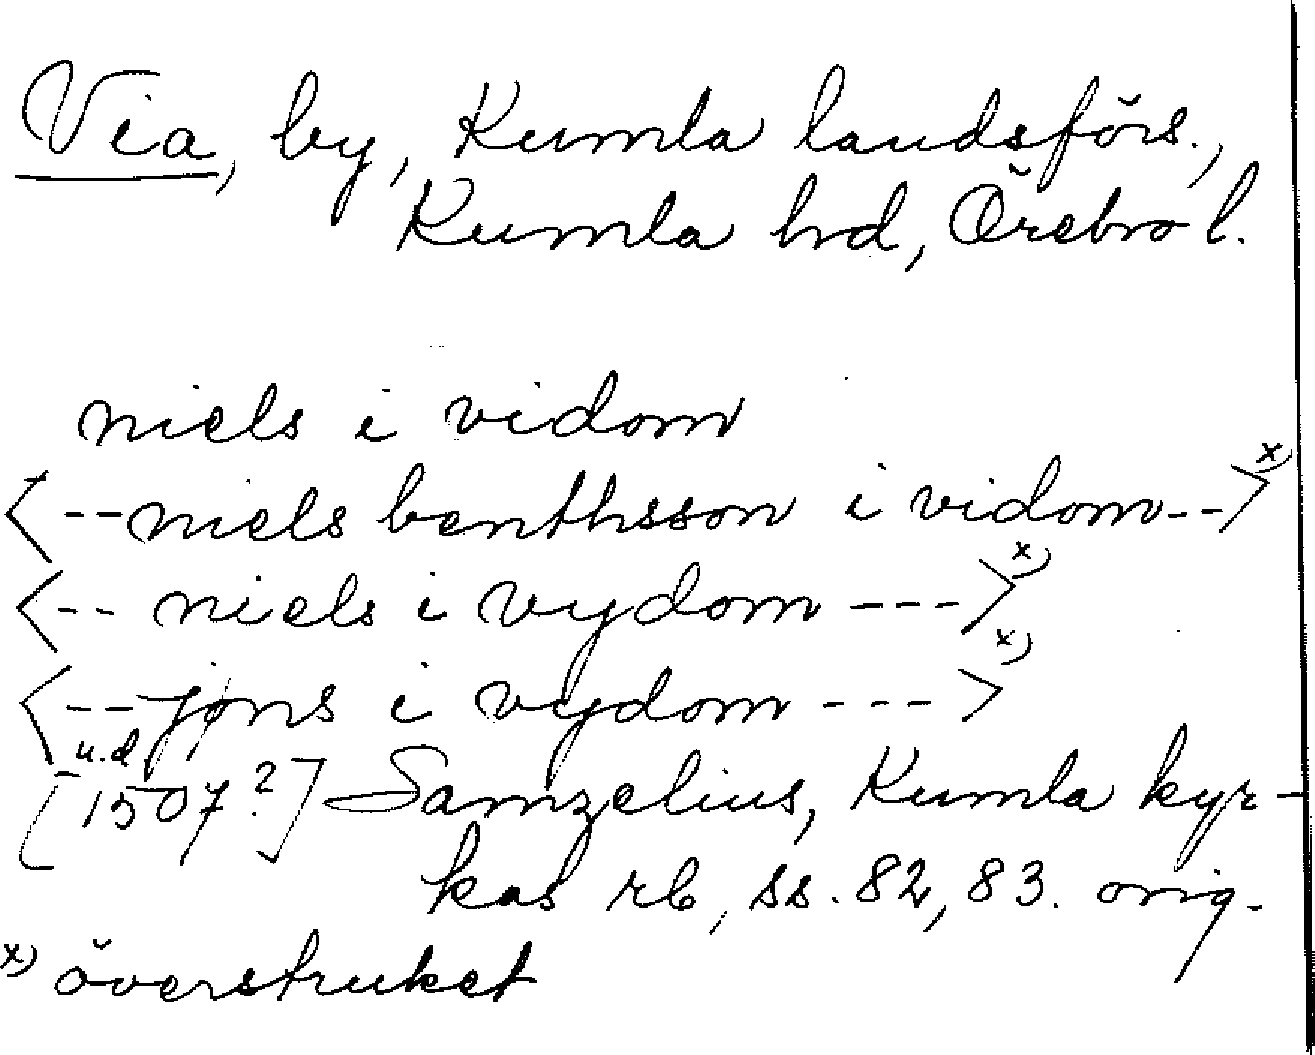 Via, by, Kumla landsförs.,
Kumla hd, Örebro l.
niels i vidom
<--niels benthsson i vidom-->x)
<-- niels i vydom --->x)
<--jöns i vydom --->x)
u.d
[1507?] Samzelius, Kumla kyr-
kas rb, ss. 82, 83. orig.
x) överstruket